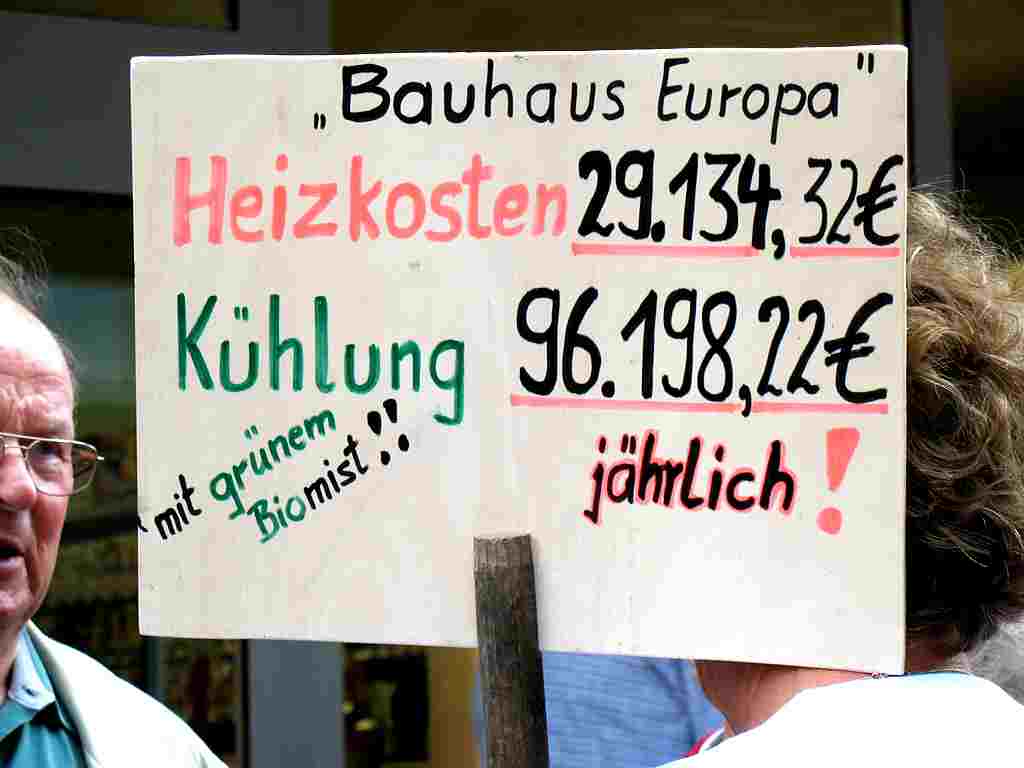 „Bauhaus Europa"
Heizkosten 29.134,32€
Kühlung 96.198,22€
mit grünem
Biomist!!
jährlich!